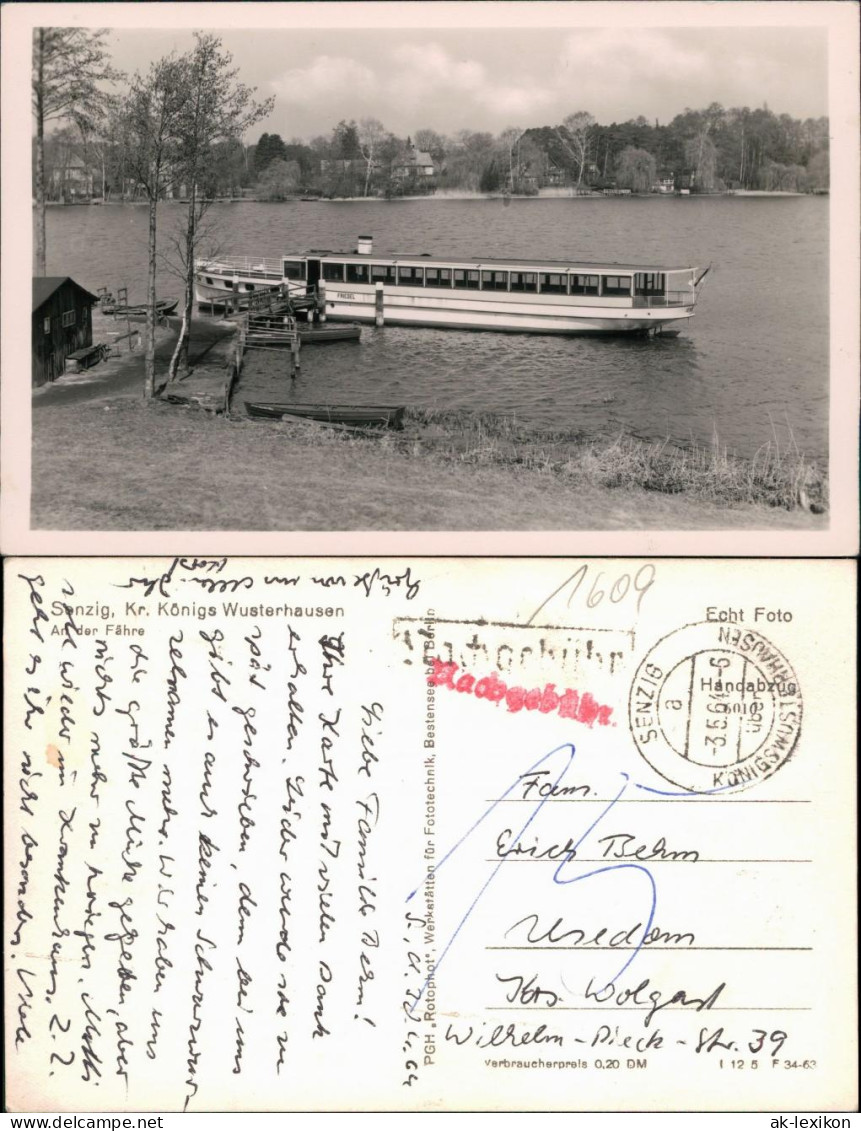 FRIEDEL
Senzig, Kr. Königs Wusterhausen
An der Fähre
Echt Foto
Handabzug
1609
Nachgebühr
Nachgebühr.
SENZIG
a
3.5.64.-6
1601
über
KÖNIGSWUSTERHAUSEN
15
S., d. 30.4.64
Liebe Familie Behm!
Ihre Karte mit vielen Dank
erhalten. Leider wurde sie zu
spät geschrieben, denn bei uns
gibt es auch keinen Schwarzwurz
relsamen mehr. Wir haben uns
die größte Mühe gegeben, aber
nichts mehr zu kriegen. Mutti
ist wieder im Krankenhaus. Z. Z.
geht es ihr nicht besonders. Viele
Grüße von uns allen. Ihr
Fam.
Erich Behm
Usedom
Krs. Wolgast
Wilhelm-Pieck-Str. 39
PGH „Rotophot", Werkstätten für Fototechnik, Bestensee bei Berlin
Verbraucherpreis 0,20 DM
I 12 5 F 34-63
AKPOOL.DE
ak-lexikon